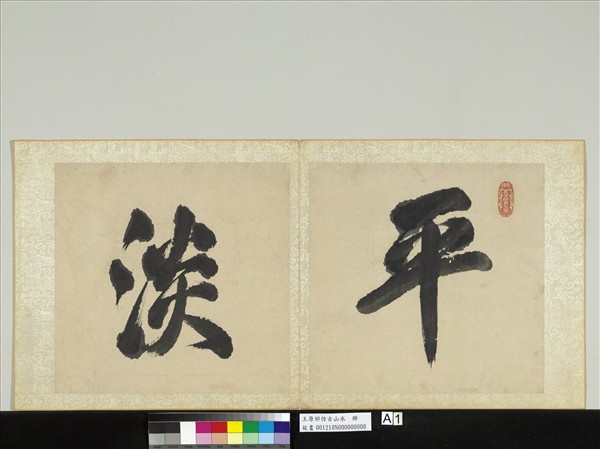 平
淡
王原祁仿古山水 冊
故畫001210N000000000
A 1